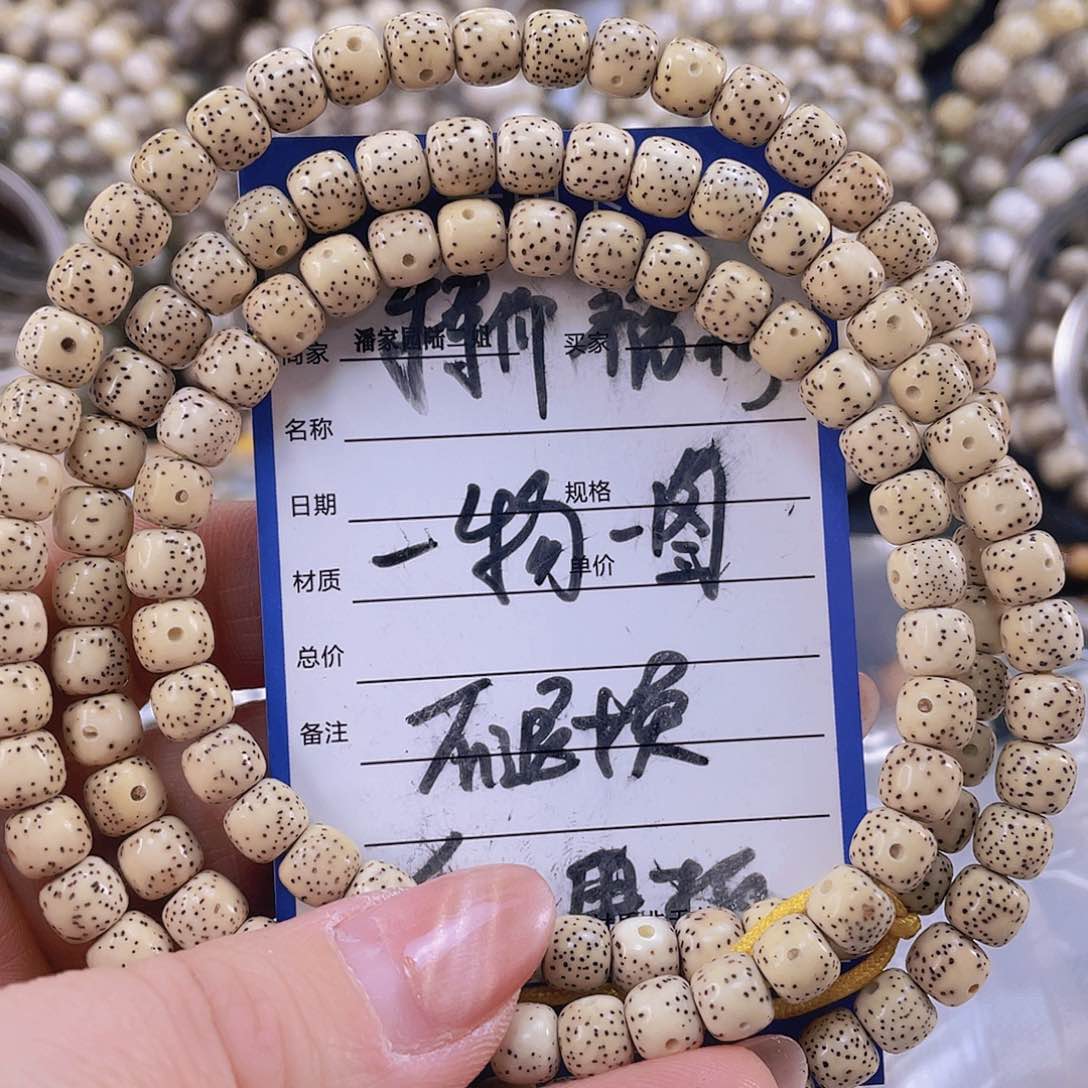 特价 福利
商家 潘家园陆一姐 买家
名称
日期 规格
一物一图
材质 单价
总价
不退换
备注